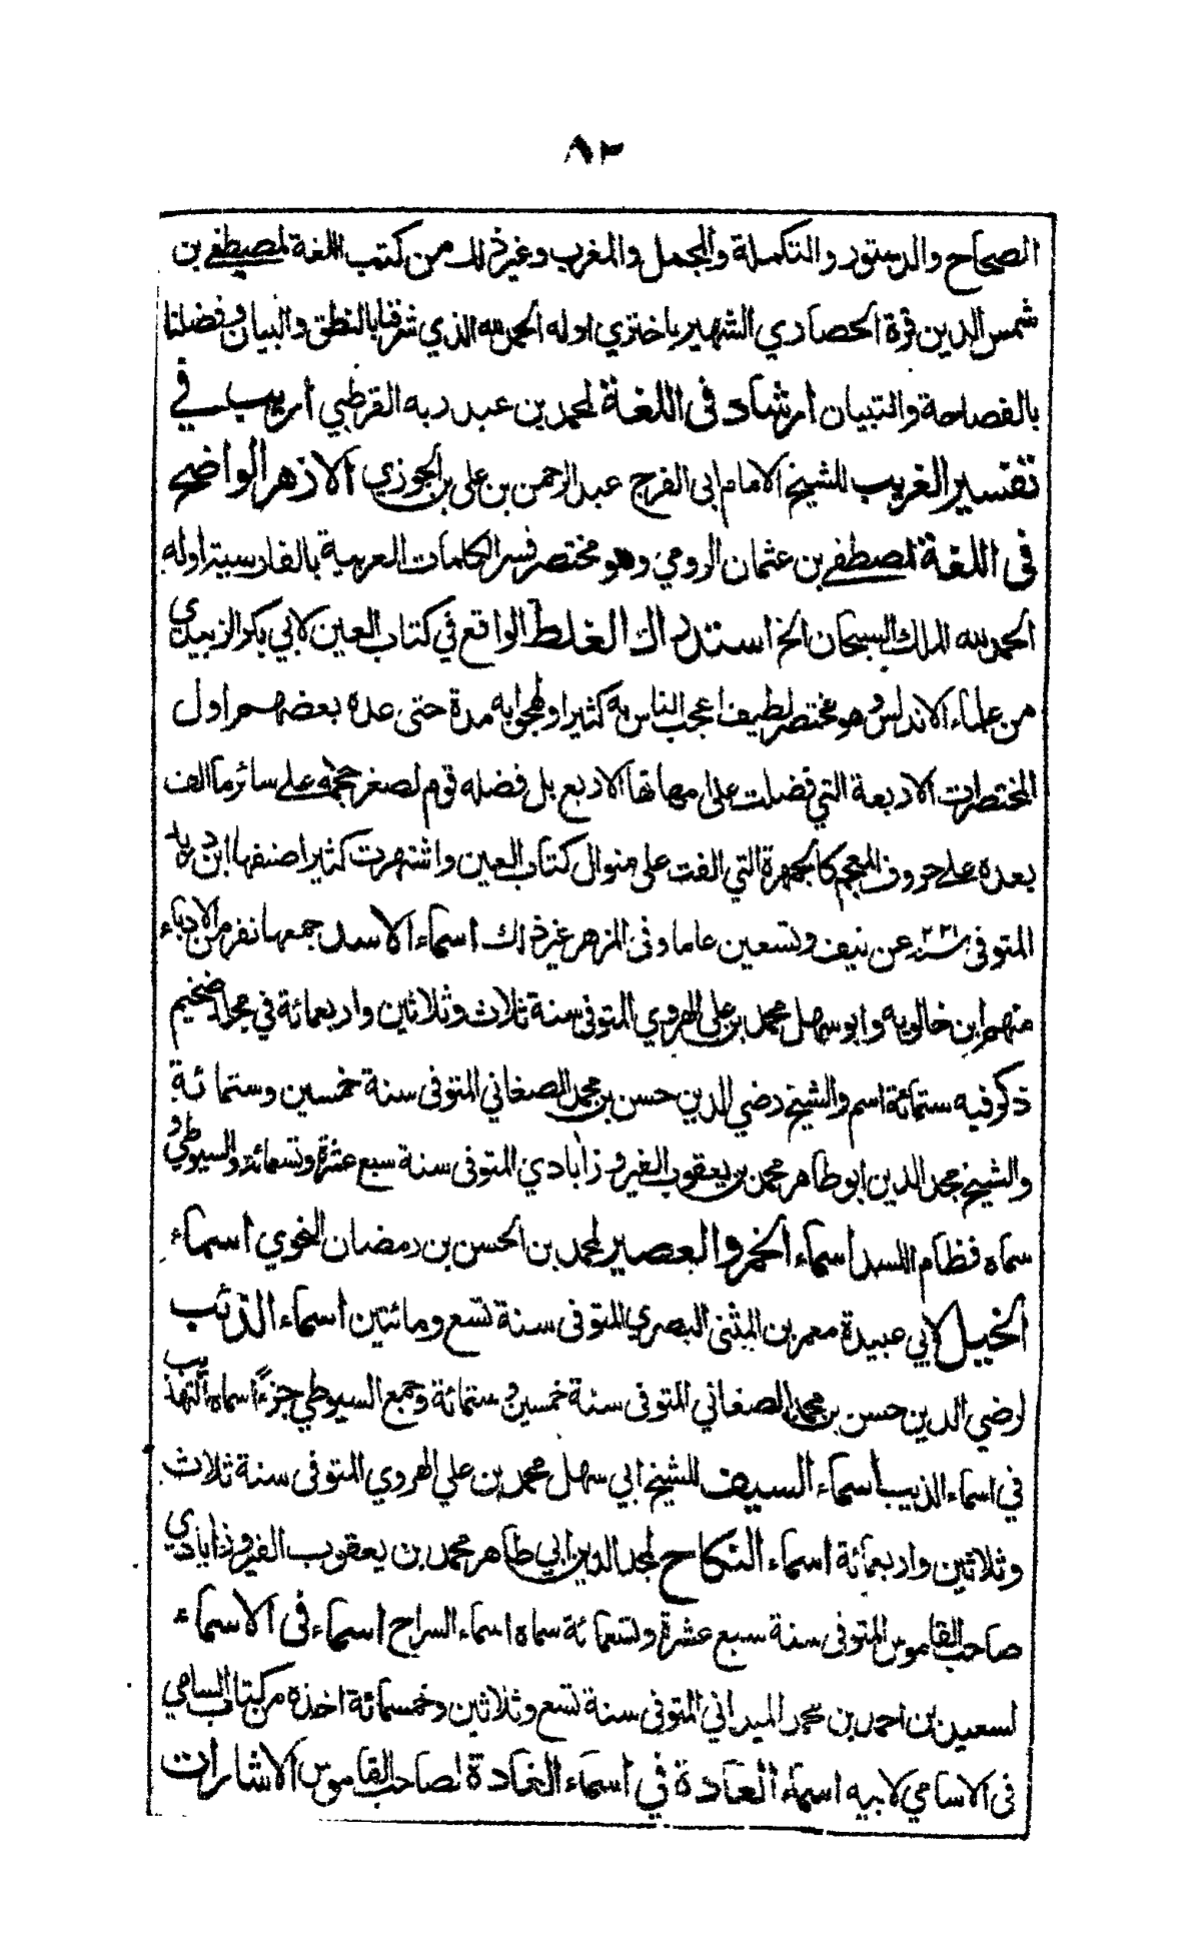 ٨٢
الصحاح والدستور والتكملة والمجمل والمغرب وغير ذلك من كتب اللغة لمصطفى بن
شمس الدين قرة الحصاري الشهير باختري اوله الحمد لله الذي شرفنا بالنطق والبيان وفضلنا
بالفصاحة والتبيان ارشاد فى اللغة لمحمد بن عبد ربه القرطبي اريب في
تفسير الغريب للشيخ الامام ابى الفرج عبد الرحمن بن على بن الجوزي الازهر الواضح
فى اللغة لمصطفى بن عثمان الرومي وهو مختصر فسر الكلمات العربية بالفارسية اوله
الحمد لله الملك السبحان الخ استدراك الغلط الواقع في كتاب العين لابي بكر الزبيدي
من علماء الاندلس وهو مختصر لطيف اعجب الناس به كثيرا ولهجوا به مدة حتى عده بعضهم اول
المختصرات الاربعة التي فضلت على امهاتها الاربع بل فضله قوم لصغر حجمه على سائر ما الف
بعده على حروف المعجم كالجمهرة التي الفت على منوال كتاب العين واشتهرت كثيرا صنفها ابن دريد
المتوفى سنة ٣٢١ عن نيف وتسعين عاما وفى المزهر غير ذلك اسماء الاسد جمعها نفر من الادباء
منهم ابن خالويه وابو سهل محمد بن على الهروي المتوفى سنة ثلاث وثلاثين واربعمائة في مجلد ضخيم
ذكر فيه ستمائة اسم والشيخ رضي الدين حسن بن محمد الصغاني المتوفى سنة خمسين وستمائة
والشيخ مجد الدين ابو طاهر محمد بن يعقوب الفيروزابادي المتوفى سنة سبع عشرة وتسمائة والسيوطي و
سماه فظام اللسد اسماء الخمر والعصير لمحمد بن الحسن بن رمضان النحوي اسماء
الخيل لابي عبيدة معمر بن المثنى البصري المتوفى سنة تسع ومائتين اسماء الذئب
لرضي الدين حسن بن محمد الصغاني المتوفى سنة خمسين وستمائة وجمع السيوطي جزءًا سماه التهذيب
في اسماء الذيب اسماء السيف للشيخ ابي سهل محمد بن علي الهروي المتوفى سنة ثلاث
وثلاثين واربعمائة اسماء النكاح لمجد الدين ابي طاهر محمد بن يعقوب الفيروزابادي
صاحب القاموس المتوفى سنة سبع عشرة وتسمائة سماه اسماء السراح اسماء فى الاسماء
لسعيد بن احمد بن محمد الميداني المتوفى سنة تسع وثلاثين وخمسمائة اخذه من كتاب السامي
فى الاسامي لابيه اسماء العادة في اسماء الغادة لصاحب القاموس الاشارات